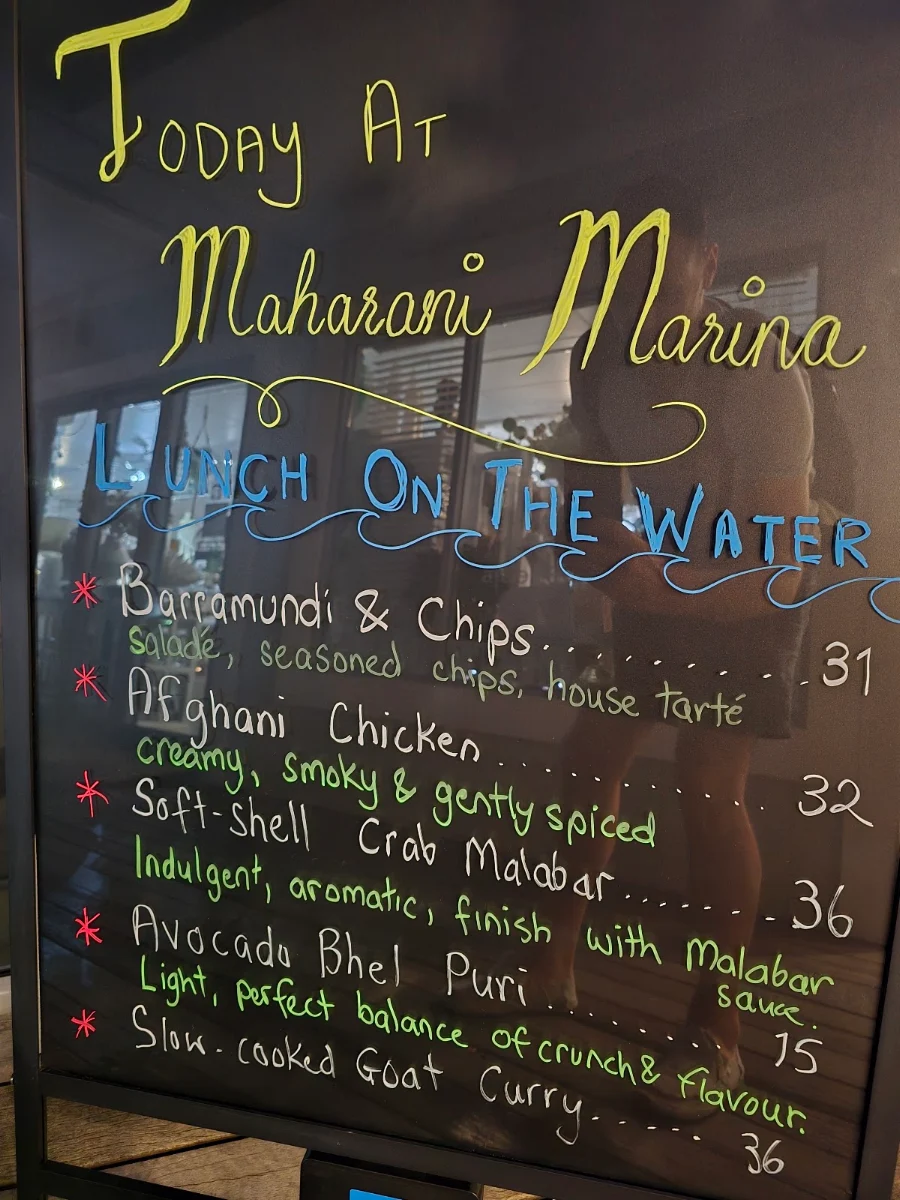 Today At
Maharani Marina
Lunch On The Water
* Barramundi & Chips.........31
saladé, seasoned chips, house tarté
* Afghani Chicken............32
creamy, smoky & gently spiced
* Soft-Shell Crab Malabar........36
Indulgent, aromatic, finish with Malabar
sauce.
* Avocado Bhel Puri..........15
Light, perfect balance of crunch & flavour.
* Slow-cooked Goat Curry......36